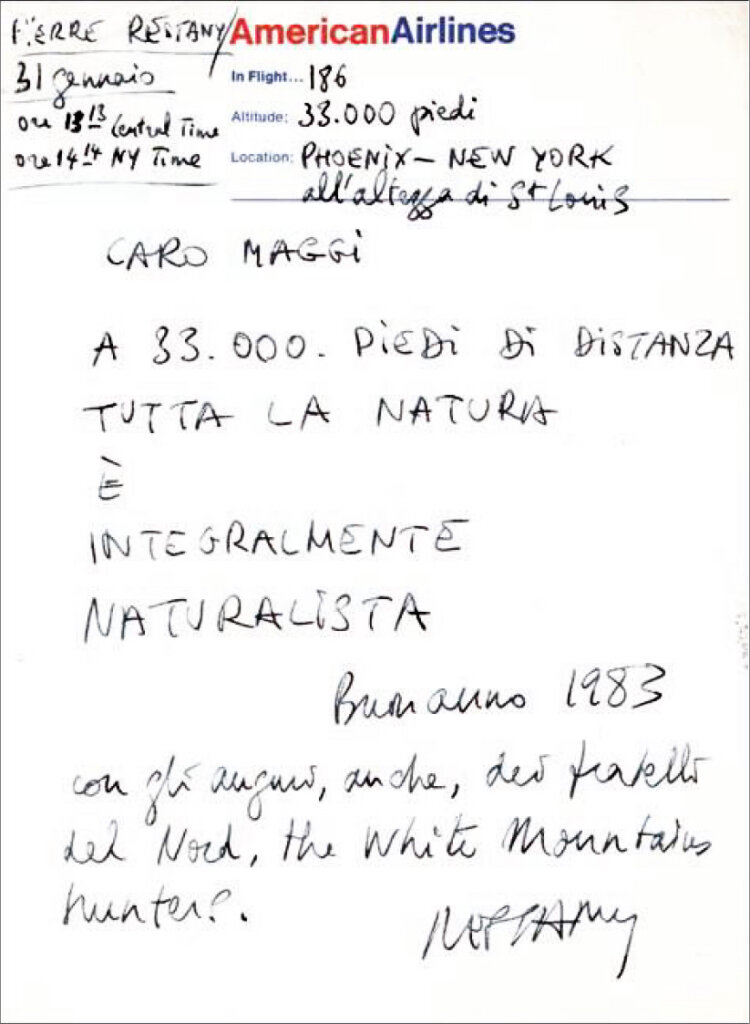 PIERRE RESTANY/AmericanAirlines
31 gennaio
In Flight... 186
ore 13 13 Central Time
Altitude: 33.000 piedi
ore 14 14 NY Time
Location: PHOENIX – NEW YORK
all'altezza di St Louis
CARO MAGGI
A 33.000. PIEDI DI DISTANZA
TUTTA LA NATURA
È
INTEGRALMENTE
NATURALISTA
Buon anno 1983
con gli auguri, anche, dei fratelli
del Nord, the White Mountains
hunters.
RESTANY